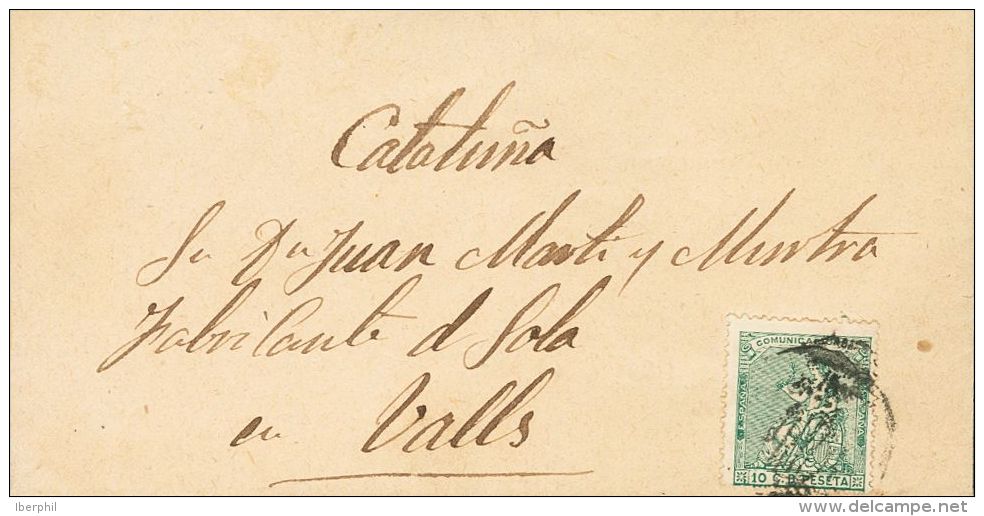 Cataluña
Sr Dn Juan Martí y Mestra
Fabricante d Sola
en Valls
COMUNICA
ESPAÑA
10 C. D. PESETA
Iberphil
delcampe.net